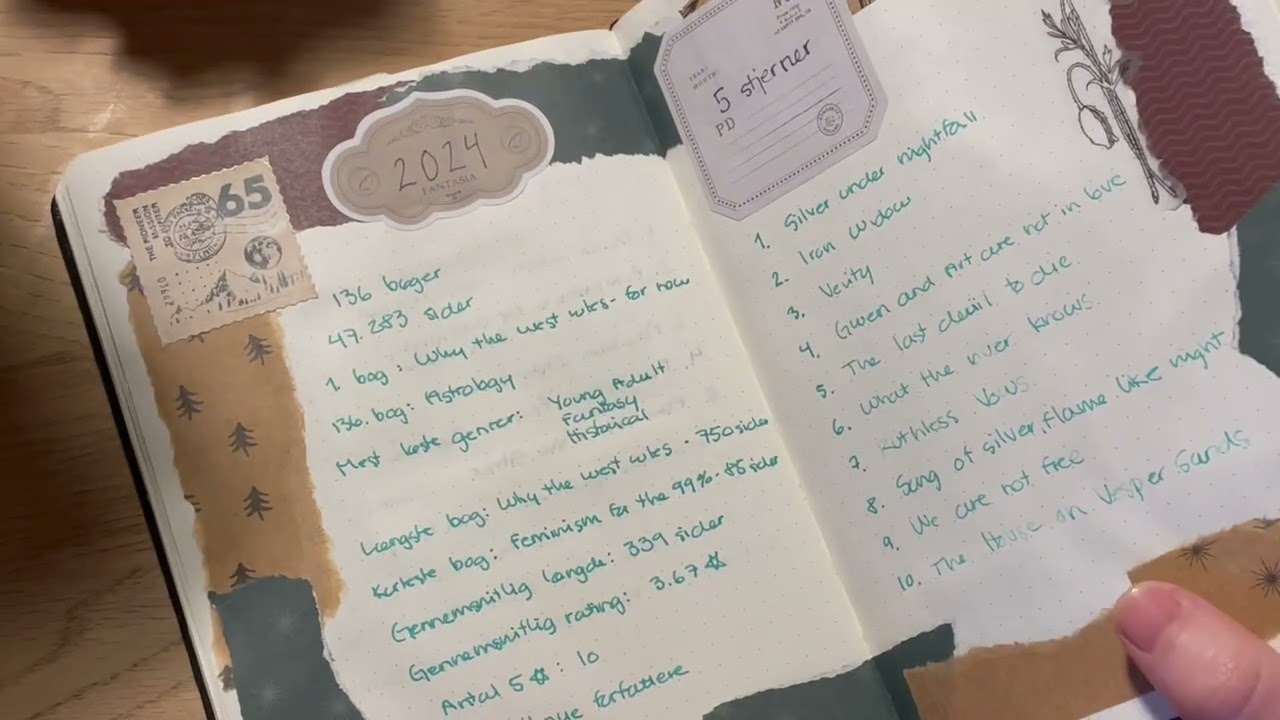 2024
FANTASIA
65
THE PIONEER
136 bøger
47.283 sider
1. bog: Why the west wks - for now
136. bog: Astrology
Mest læste genrer: Young Adult
Fantasy
Historical
Længste bog: Why the west wks - 750 sider
Korteste bog: Feminism for the 99% - 85 sider
Gennemsnitlig længde: 339 sider
Gennemsnitlig rating: 3.67 ☆
Antal 5 ☆: 10
forfattere
5 stjerner
PD
1. Silver under nightfall
2. Iron widow
3. Verity
4. Gwen and Art are not in love
5. The last devil to die
6. What the river knows
7. Ruthless Vows
8. Song of silver, flame like night
9. We are not free
10. The House on Vesper Sands